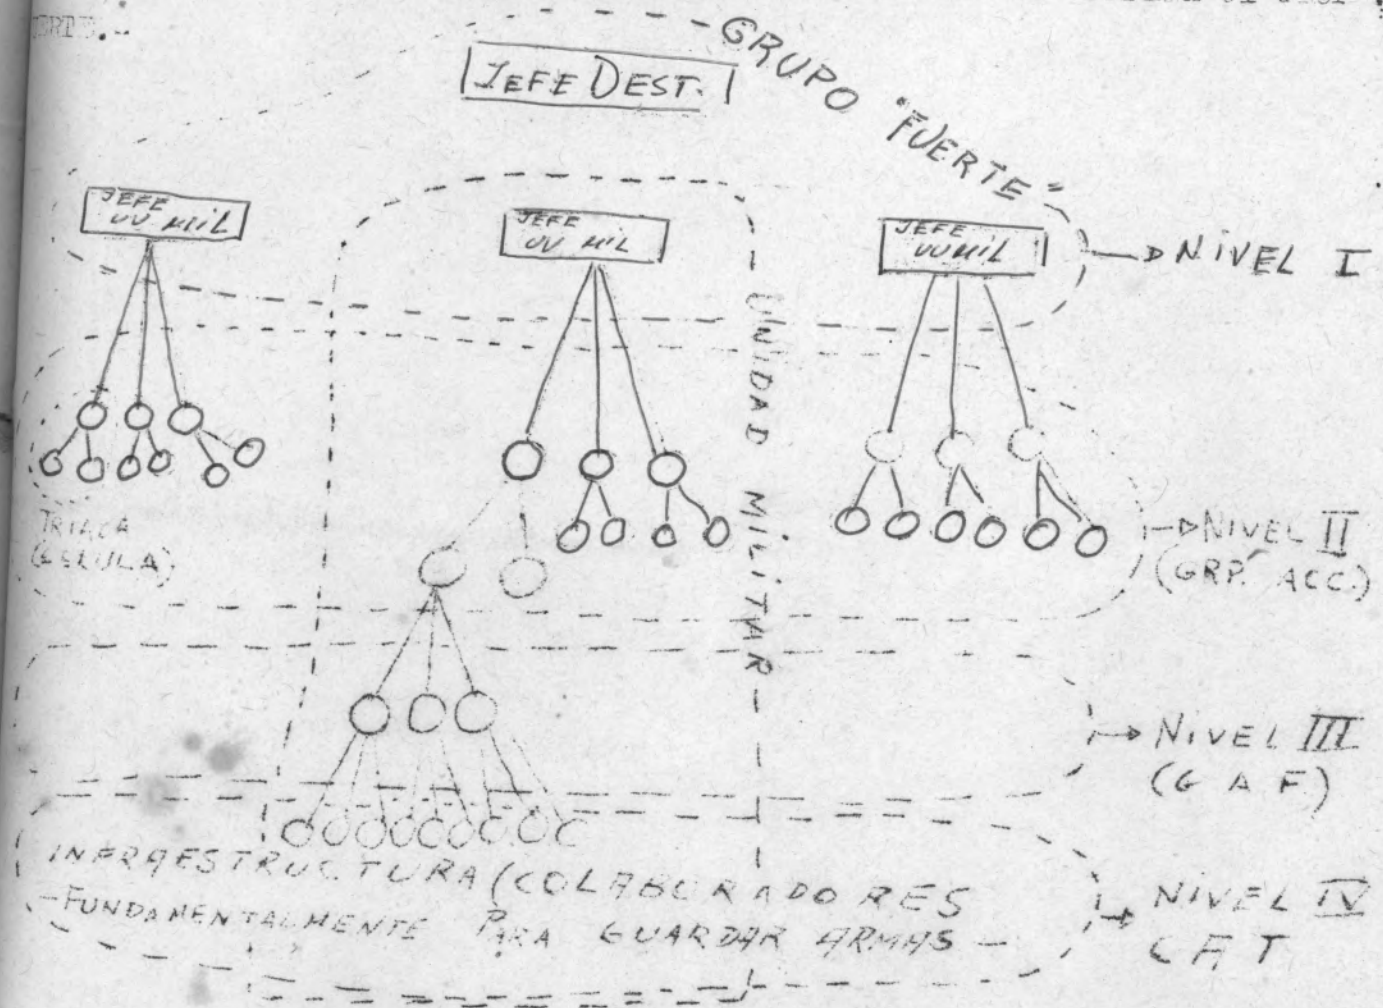 GRUPO "FUERTE"
JEFE DEST.
JEFE
UU MIL
JEFE
UU MIL
JEFE
UU MIL
NIVEL I
UNIDAD MILITAR
TRIADA
NIVEL II
(GRP. ACC.)
NIVEL III
(G A F)
INFRAESTRUCTURA (COLABORADORES
- FUNDAMENTALMENTE PARA GUARDAR ARMAS -
NIVEL IV